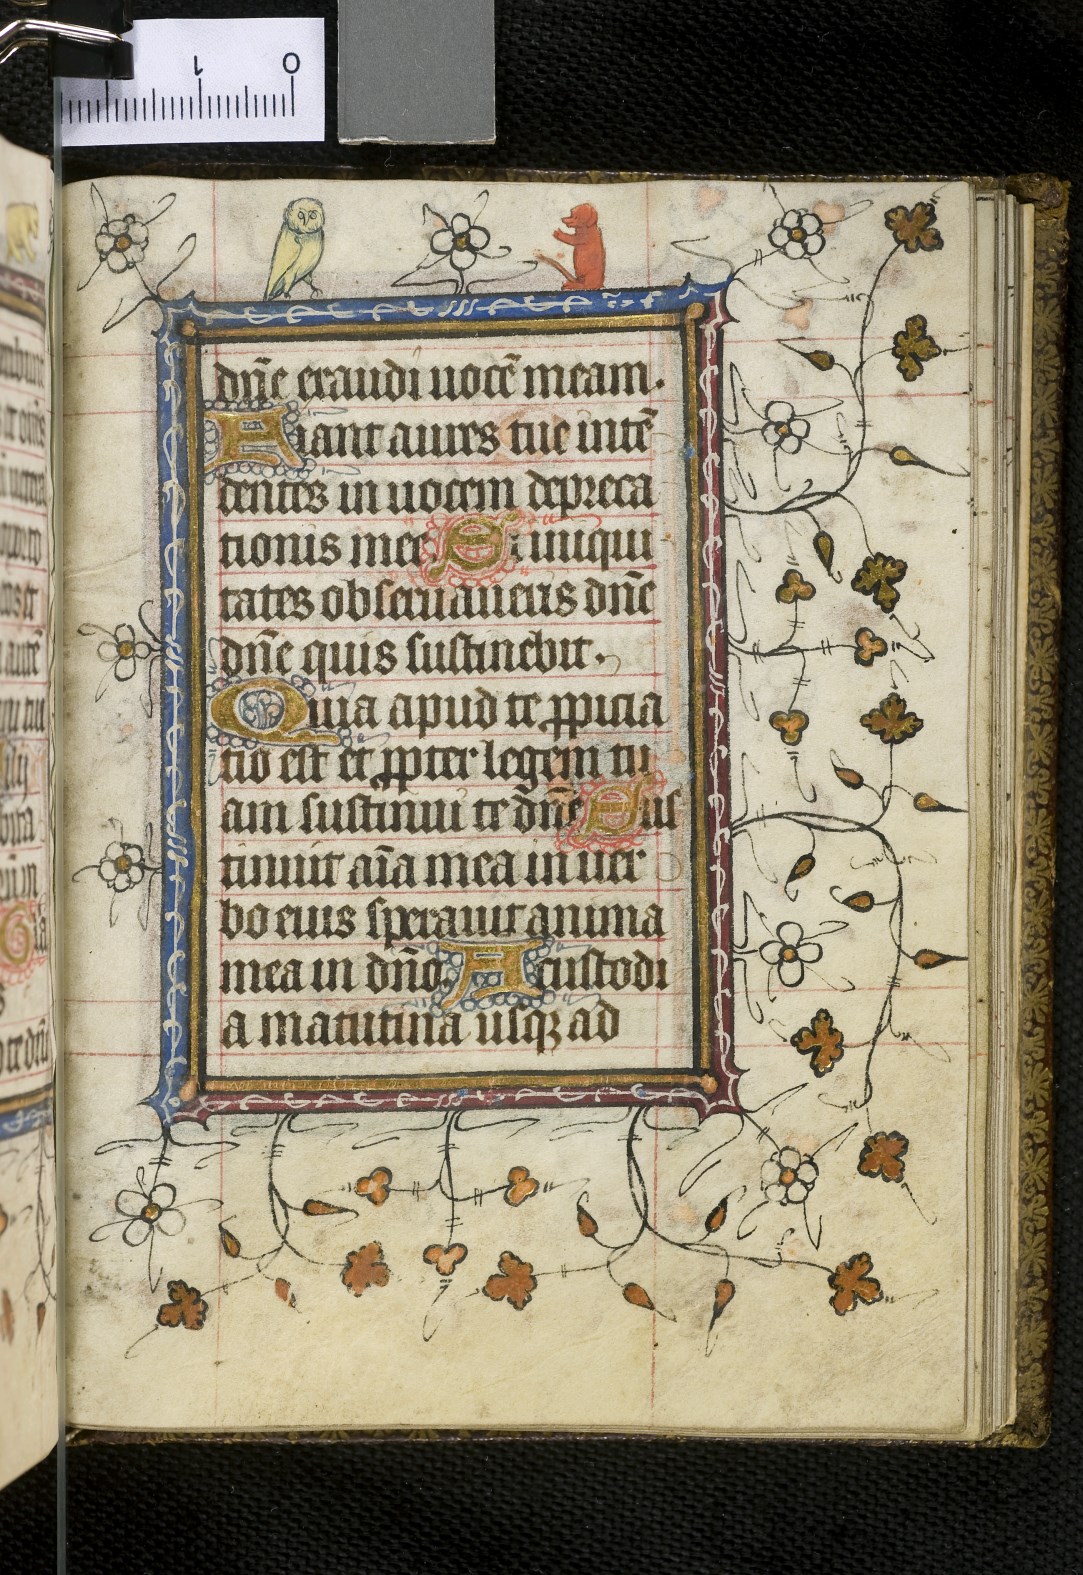 1 0
dn̄e eraudi uocē meam.
Fiant aures tue intē
dentes in uocem depreca
tionis mee Si iniqui
tates obseruaueris dn̄e
dn̄e quis sustinebit.
Quia apud te ꝓpicia
tio est et ꝓpter legem tu
am sustinui te dn̄e Sus
tinuit aīa mea in uer
bo eius sperauit anima
mea in dn̄o. A custodi
a matutina usqꝫ ad